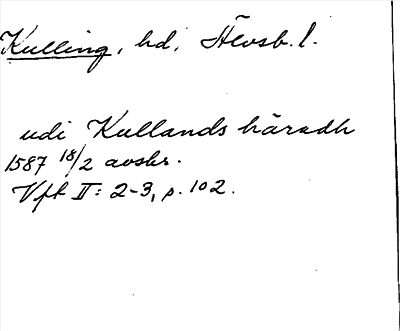 Kulling, hd, Älvsb. l.
udi Kullands häradh
1587 18/2 avskr.
Vft II: 2-3, p. 102.